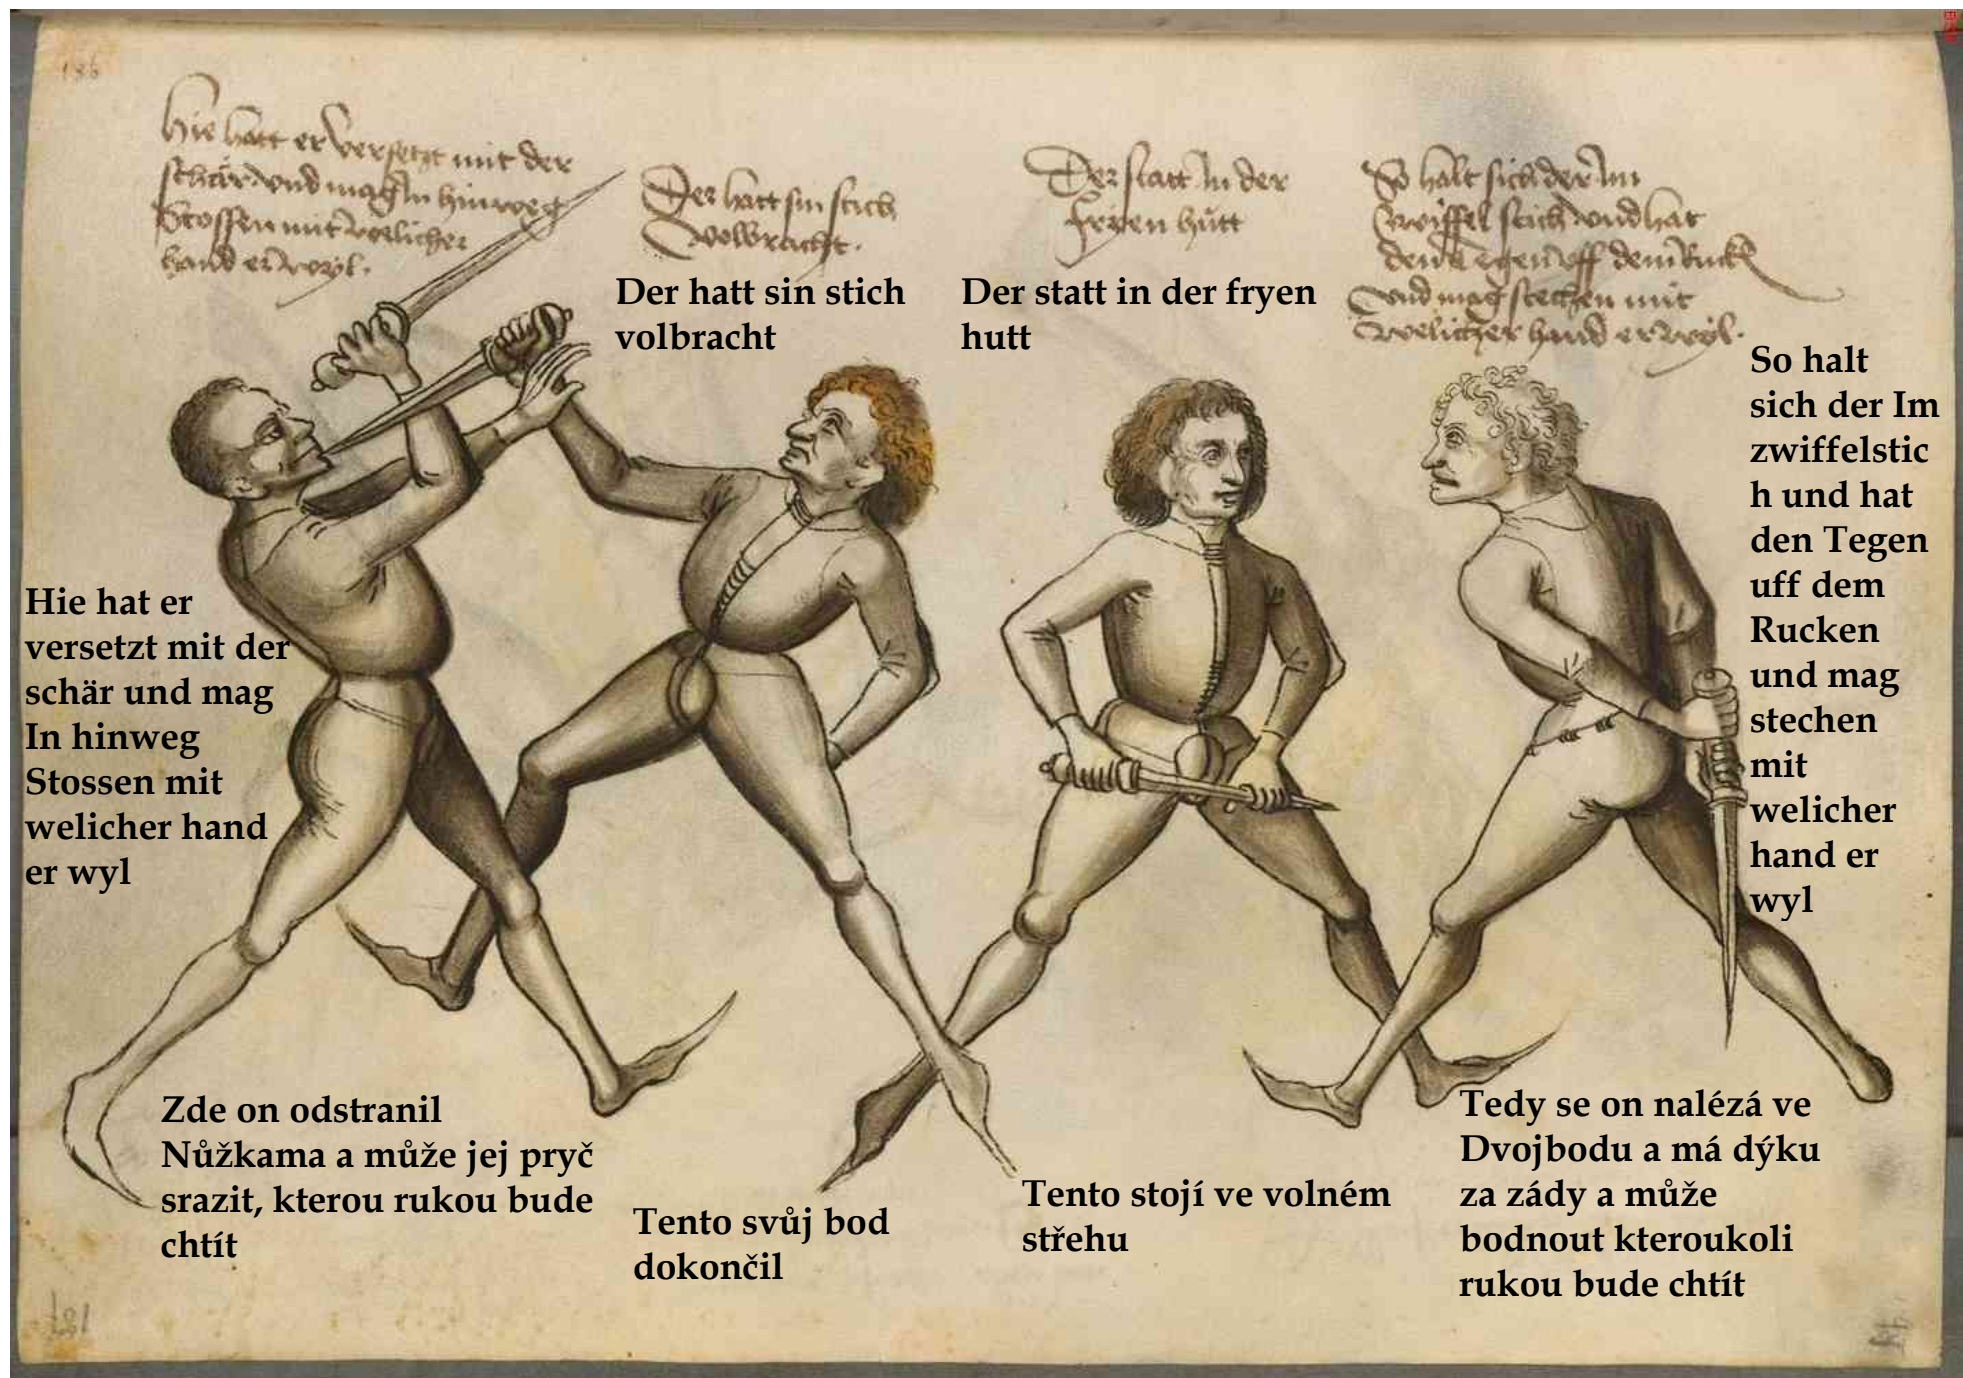 186
Hie hatt er versetzt mit der
schär und mag In hinweg
Stossen mit welicher
hand er wyl.
Der hatt sin stich
volbracht.
Der statt In der
fryen hůtt
So halt sich der Im
zwiffel stich und hat
den tegen uff dem Ruck
und mag stechen mit
welicher hand er wyl.
Der hatt sin stich
volbracht
Der statt in der fryen
hutt
So halt
sich der Im
zwiffelstic
h und hat
den Tegen
uff dem
Rucken
und mag
stechen
mit
welicher
hand er
wyl
Hie hat er
versetzt mit der
schär und mag
In hinweg
Stossen mit
welicher hand
er wyl
Zde on odstranil
Nůžkama a může jej pryč
srazit, kterou rukou bude
chtít
Tento svůj bod
dokončil
Tento stojí ve volném
střehu
Tedy se on nalézá ve
Dvojbodu a má dýku
za zády a může
bodnout kteroukoli
rukou bude chtít